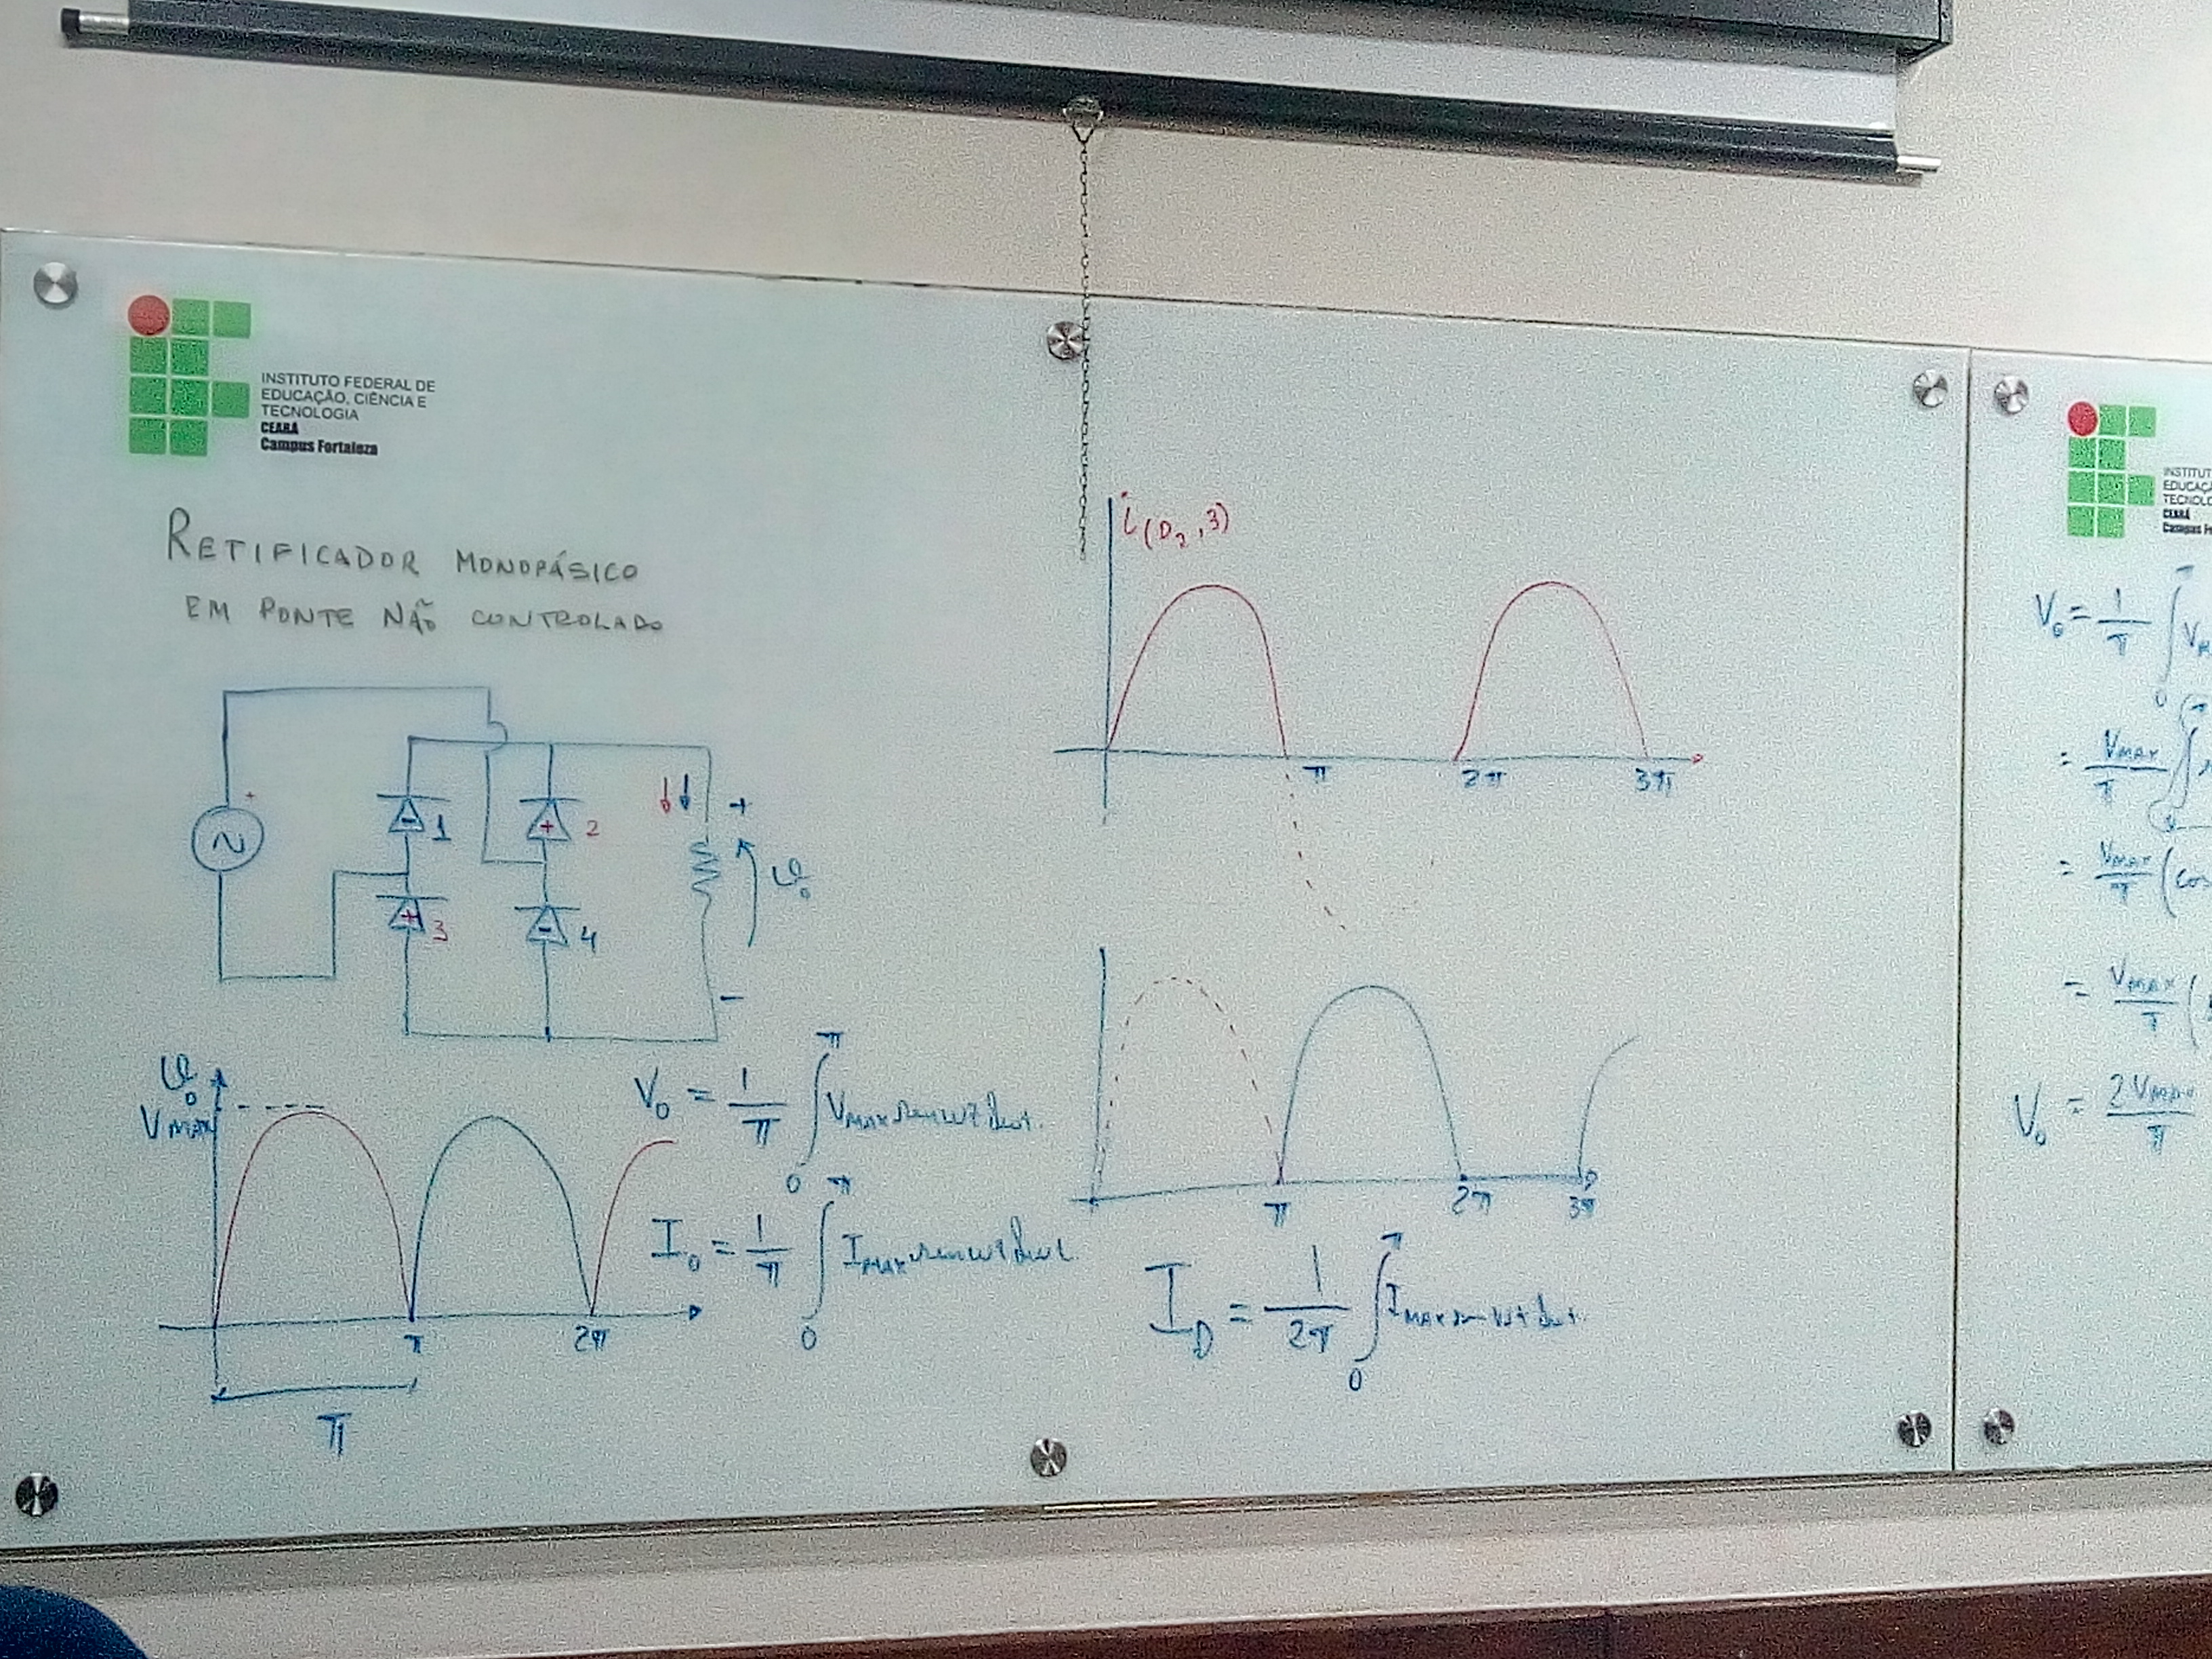 INSTITUTO FEDERAL DE
EDUCAÇÃO, CIÊNCIA E
TECNOLOGIA
CEARÁ
Campus Fortaleza
RETIFICADOR MONOFÁSICO
EM PONTE NÃO CONTROLADO
+
1
2
3
4
+
υ₀
-
υ₀
VMAX
π
2π
π
V₀ = 1/π ∫₀^π VMAX sen wt dwt.
I₀ = 1/π ∫₀^π IMAX sen wt dwt.
i(D₂,3)
π
2π
3π
π
2π
3π
I_D = 1/2π ∫₀^π IMAX sen wt dwt.
INSTITUT
EDUCAÇ
TECNOLO
CEARÁ
Campus F
V₀ = 1/π ∫₀^π
= VMAX/π ∫
= VMAX/π (cos
= VMAX/π (
V₀ = 2VMAX/π